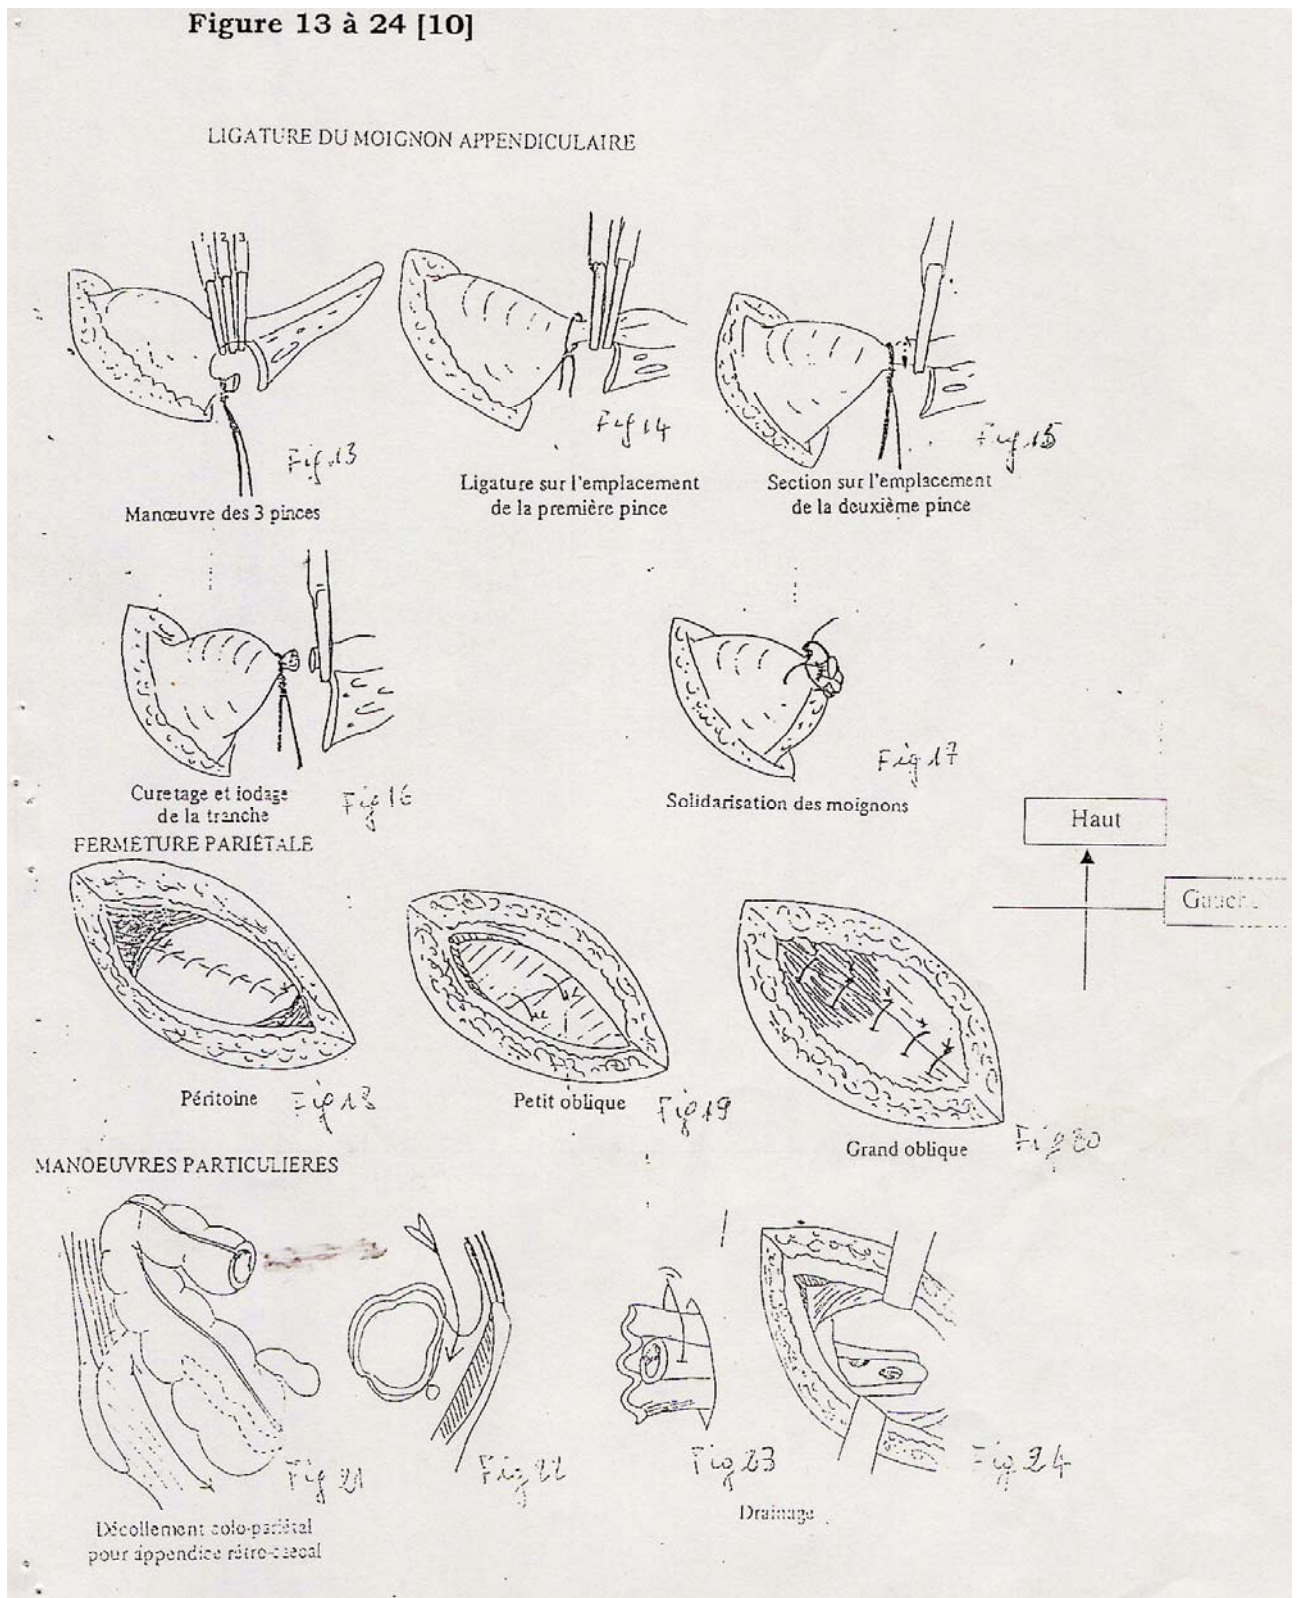 Figure 13 à 24 [10]
LIGATURE DU MOIGNON APPENDICULAIRE
1 2 3
Fig 13
Fig 14
Fig 15
Manœuvre des 3 pinces
Ligature sur l'emplacement
de la première pince
Section sur l'emplacement
de la deuxième pince
Fig 16
Fig 17
Curetage et iodage
de la tranche
Solidarisation des moignons
Haut
Gauche
FERMETURE PARIÉTALE
Péritoine
Fig 18
Petit oblique
Fig 19
Grand oblique
Fig 20
MANOEUVRES PARTICULIERES
Fig 21
Fig 22
Fig 23
Fig 24
Décollement colo-pariétal
pour appendice rétro-caecal
Drainage